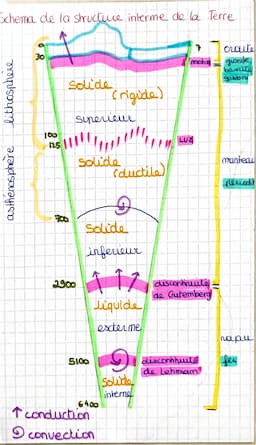 Schema de la structure interne de la Terre
0
7
croûte
30
moho
granite
basalte
gabbro
lithosphère
solide
(rigide)
superieur
100
125
LVZ
solide
(ductile)
manteau
asthénosphère
700
solide
inferieur
2900
discontinuite
de Gutemberg
liquide
externe
noyau
5100
discontinuite
de Lehmann
fer
solide
interne
6400
↑ conduction
convection